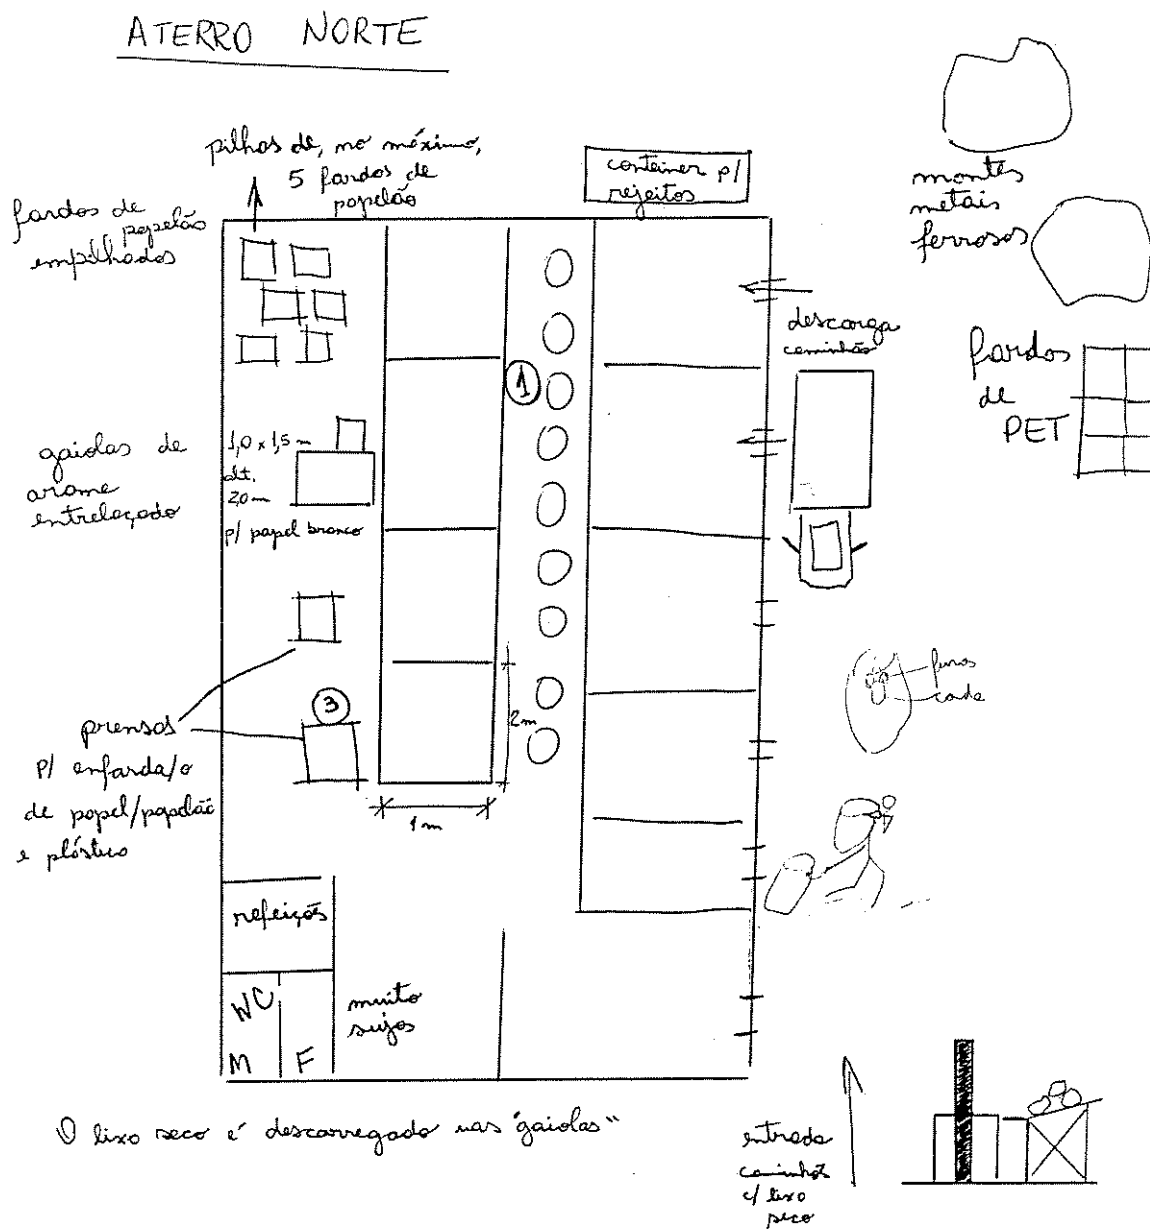 ATERRO NORTE
pilhas de, no máximo,
5 fardos de
papelão
fardos de
papelão
empilhados
container p/
rejeitos
montes
metais
ferrosos
descarga
caminhão
fardos
de
PET
1
gaiolas de
arame
entrelaçado
1,0 x 1,5 m
alt.
2,0 m
p/ papel branco
furos
3
prensas
p/ enfarda/o
de papel/papelão
e plástico
2m
1m
refeições
WC
M F
muito
sujos
O lixo seco é descarregado nas "gaiolas"
entrada
caminhões
c/ lixo
seco